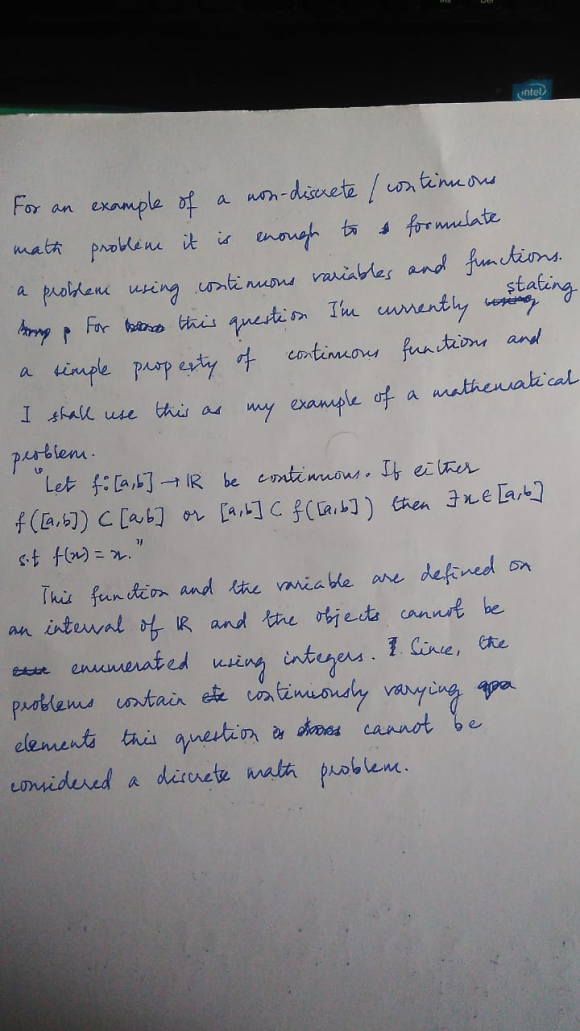 Ins
Del
intel
For an example of a non-discrete / continuous
math problem it is enough to formulate
a problem using continuous variables and functions.
For this question I'm currently stating
a simple property of continuous functions and
I shall use this as my example of a mathematical
problem.
"Let f:[a,b] → IR be continuous. If either
f([a,b]) ⊂ [a,b] or [a,b] ⊂ f([a,b]) then ∃x∈[a,b]
s.t f(x) = x."
This function and the variable are defined on
an interval of IR and the objects cannot be
enumerated using integers. Since, the
problems contain continuously varying
elements this question cannot be
considered a discrete math problem.